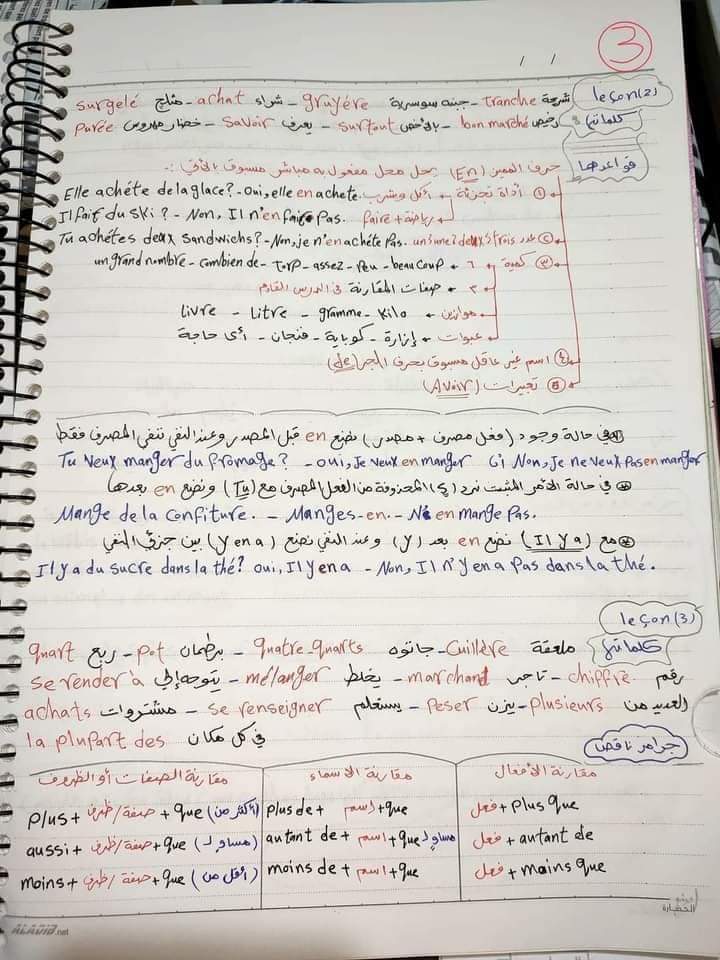 3
/ /
leçon(2) شريحة tranche - جبنه سوسرية gruyére - شراء achat - مثلج surgelé
كلماتها رخيص bon marché - بالأخص surtout - يعرف savoir - خضار مهروس purée
قواعدها
حرف الضمير (En) يحل محل مفعول به مباشر مسبوق بالآتى :-
① أداة تجزئة ← أكل وشرب Elle achéte de la glace? - oui, elle en achete.
رياضة + faire Il fait du ski ? - Non, Il n'en fait pas.
② عدد un, une, deux, trois Tu achétes deux sandwichs? - Non, je n'en achéte pas.
③ كمية ← ١ beaucoup - peu - assez - torp - combien de - un grand nombre
٢ صفات المقارنة فى الدرس القادم
موازين kilo - gramme - Litre - Livre
عبوات إزازة - كوباية - فنجان - أى حاجة
④ اسم غير عاقل مسبوق بحرف الجر (de)
⑤ تعبيرات (Avoir)
فى حالة وجود (فعل مصرف + مصدر) نضع en قبل المصدر وعند النفى ننفى المصرف فقط
Tu veux manger du fromage? - oui, Je veux en manger Non, Je ne veux pas en manger
فى حالة الأمر المثبت نرد (s) المحذوفة من الفعل المصرف مع (Tu) ونضع en بعدها
Mange de la confiture. - Manges-en. - N'en mange pas.
مع (Il y a) نضع en بعد (y) وعند النفى نضع (y en a) بين جزئى النفى
Il y a du sucre dans la thé? oui, Il y en a - Non, Il n'y en a pas dans la thé.
leçon(3)
كلماتها ملعقة Cuillère - جاتوه quatre-quarts - برطمان pot - ربع quart
رقم chiffre - تاجر marchand - يخلط mélanger - يتوجه إلى se render à
العديد من plusieurs - يزن Peser - يستعلم se renseigner - مشتروات achats
فى كل مكان la plupart des
جرامر ناقصا
مقارنة الأفعال مقارنة الاسماء مقارنة الصفات أو الظروف
فعل + plus que plus de + اسم + que plus + صفة/ظرف + que (أكثر من)
فعل + autant de autant de + اسم + que مساوٍ لـ aussi + صفة/ظرف + que (مساوٍ لـ)
فعل + moins que moins de + اسم + que moins + صفة/ظرف + que (أقل من)
الحضارة